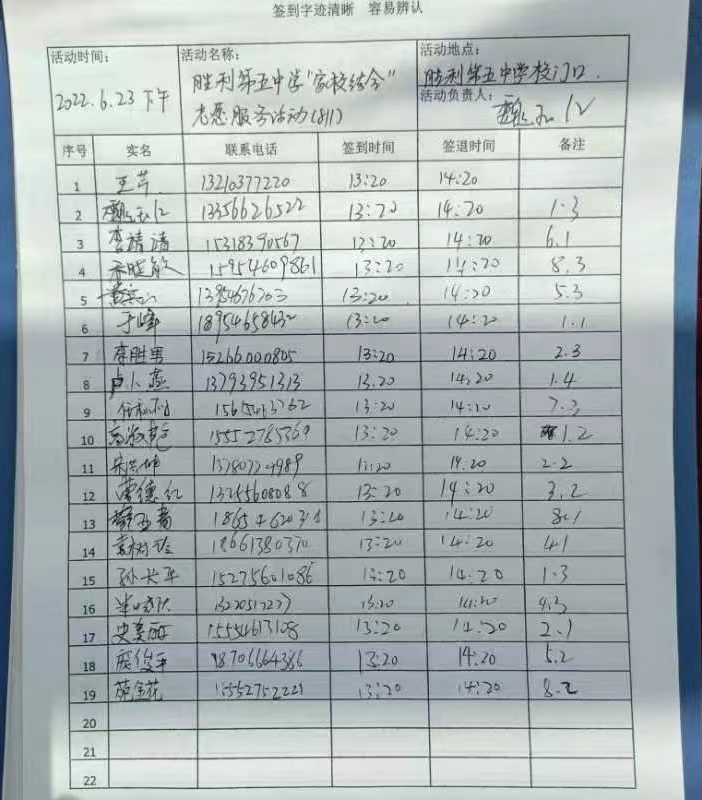 签到字迹清晰 容易辨认
活动时间: 活动名称: 活动地点:
2022.6.23下午 胜利第五中学"家校结合" 胜利第五中学校门口.
志愿服务活动(811) 活动负责人:
序号 实名 联系电话 签到时间 签退时间 备注
1 王芹 13210377220 13:20 14:20
2 13356626522 13:20 14:20 1.3
3 李靖靖 15318390567 13:20 14:20 6.1
4 15954609861 13:20 14:20 8.3
5 13:20 14:20 5.3
6 于峰 18954658432 13:20 14:20 1.1
7 李胜男 15266000805 13:20 14:20 2.3
8 卢小燕 13793951313 13.20 14:20 1.4
9 13:20 14:20 7.3
10 15552785369 13:20 14:20 1.2
11 13:20 14:20 2.2
12 曹德红 13:20 14:20 3.2
13 13:20 14:20 8.1
14 18061380370 13:20 14:20 4.1
15 孙长平 15275601086 13:20 14:20 1.3
16 13:20 14:20 4.3
17 史美丽 15554613108 13:20 14:20 2.1
18 18706664386 13:20 14:20 5.2
19 范金花 15552752221 13:20 14:20 8.2
20
21
22